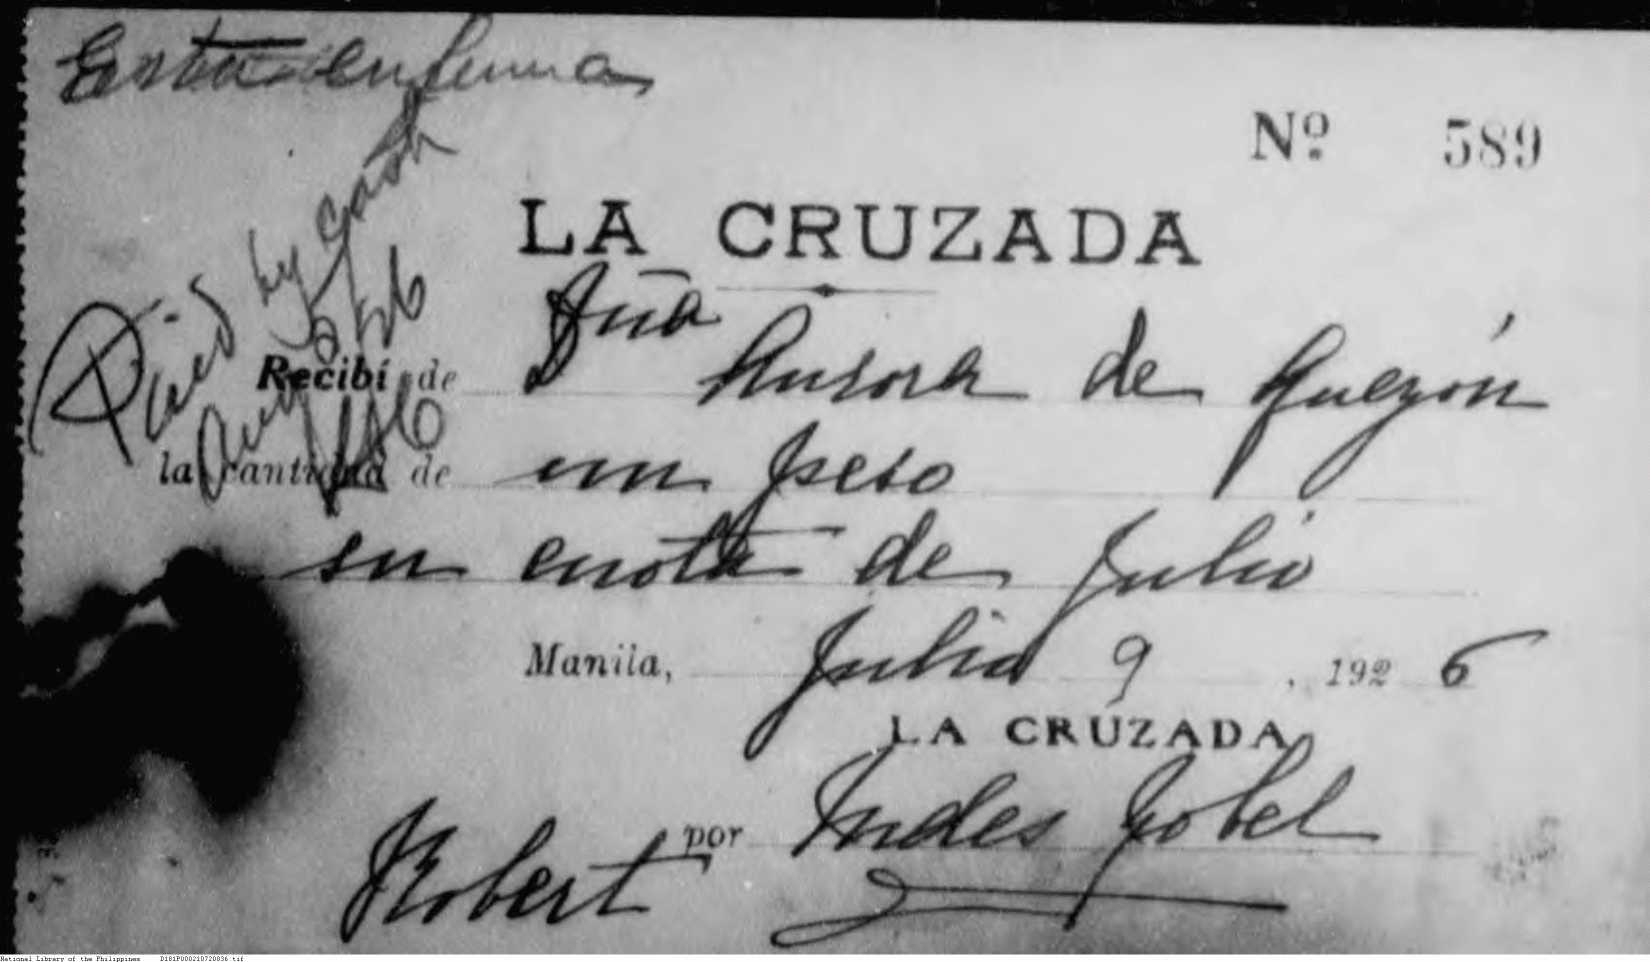 Esta enferma
Nº 589
LA CRUZADA
Paid by cash
Aug 5/26
Recibí de Dña Aurora de Quezón
la cantidad de un peso
su cuota de Julio
Manila, Julio 9, 1926
LA CRUZADA
por Zobel
Robert
National Library of the Philippines D181P000210720836.tif